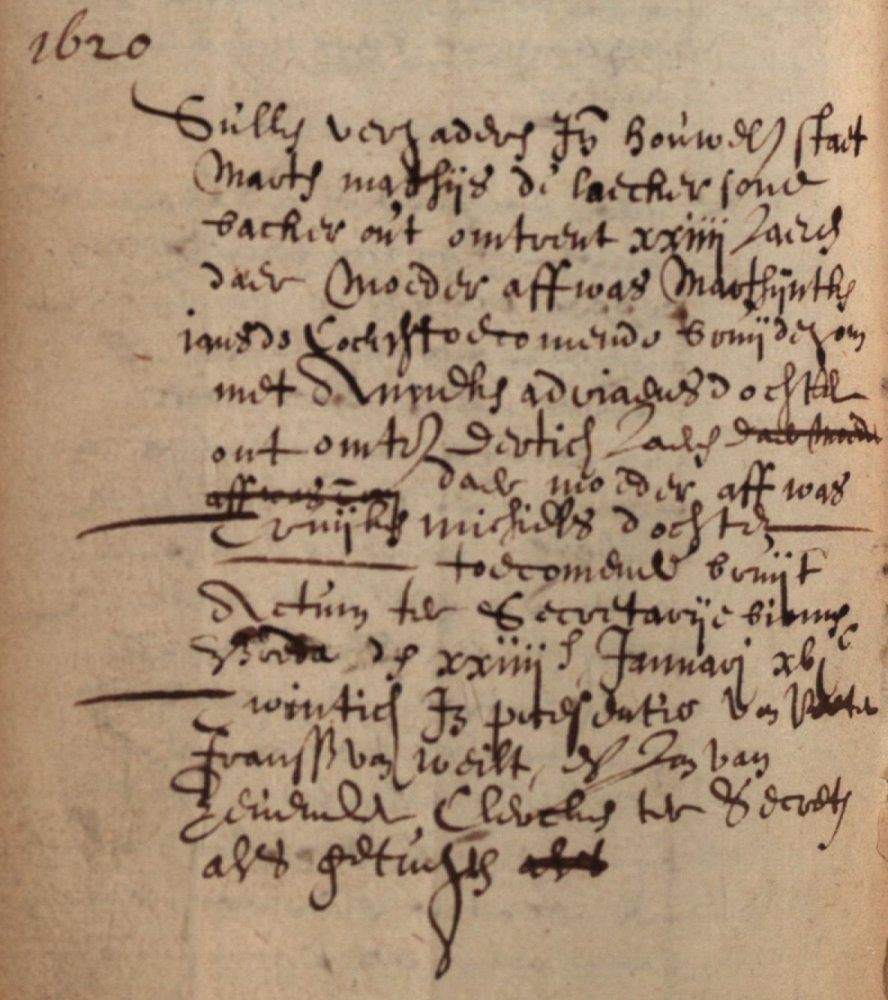 1620
Sullen vergaderen In houwelijck staet
Marten mathijs de laecker sone
backer out omtrent xxiiii Jaeren
daer Moeder aff was Mathijntken
jans de toecomende bruijdegom
met adriaens dochter
out omtr dertich Jaeren daer moeder
aff was daer moeder aff was
michiels dochter
toecomende bruijt
Actum ter Secretarije binnen
Breda den xxiiii en Januarj xvj c
twintich In presentie van Peeter
Franss van weilt, en Jan van
Clercken ter Secret
als getuijgen als